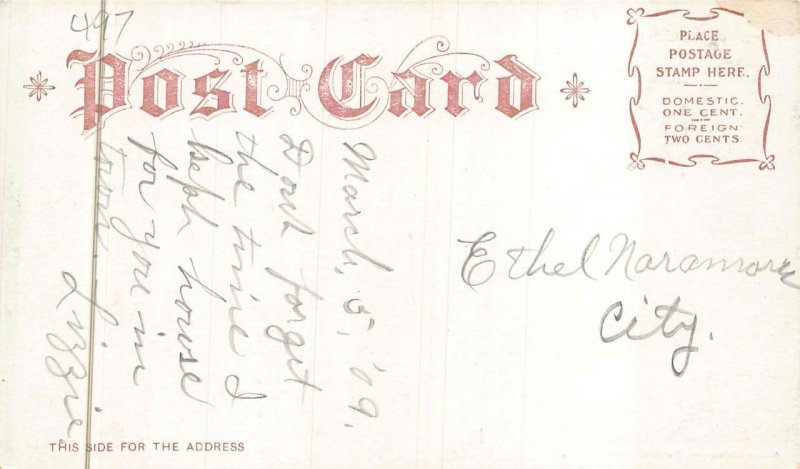 497
Post Card
PLACE
POSTAGE
STAMP HERE.
DOMESTIC.
ONE CENT.
FOREIGN
TWO CENTS.
March, 5, '09.
Dont forget
the time I
keph house
for you in
town.
Lizzie.
Ethel Naramore
City.
THIS SIDE FOR THE ADDRESS